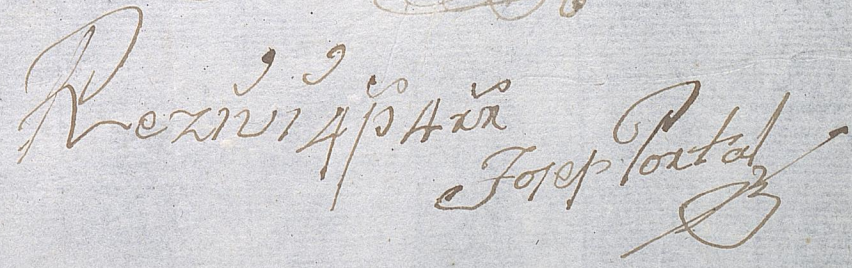 Reziví 4 p 4 rr
Josep Portal